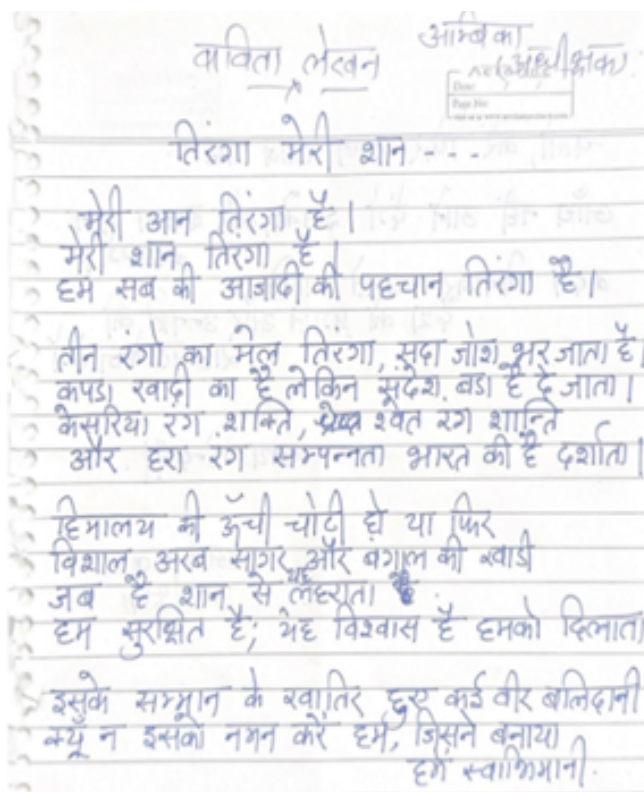 कविता लेखन
अम्बिका
(अधीक्षक)
Date:
Page No:
तिरंगा मेरी शान - - -
मेरी आन तिरंगा है।
मेरी शान तिरंगा है।
हम सब की आजादी की पहचान तिरंगा है।
तीन रंगो का मेल तिरंगा, सदा जोश भर जाता है।
कपडा खादी का है लेकिन संदेश बडा है दे जाता।
केसरिया रंग शक्ति, श्वेत रंग शान्ति
और हरा रंग सम्पन्नता भारत की है दर्शाता।
हिमालय की ऊँची चोटी हो या फिर
विशाल अरब सागर और बंगाल की खाडी
जब है शान से यह लहराता
हम सुरक्षित है; यह विश्वास है हमको दिलाता
इसके सम्मान के खातिर हुए कई वीर बलिदानी
क्यूँ न इसको नमन करें हम, जिसने बनाया
हमें स्वाभिमानी.